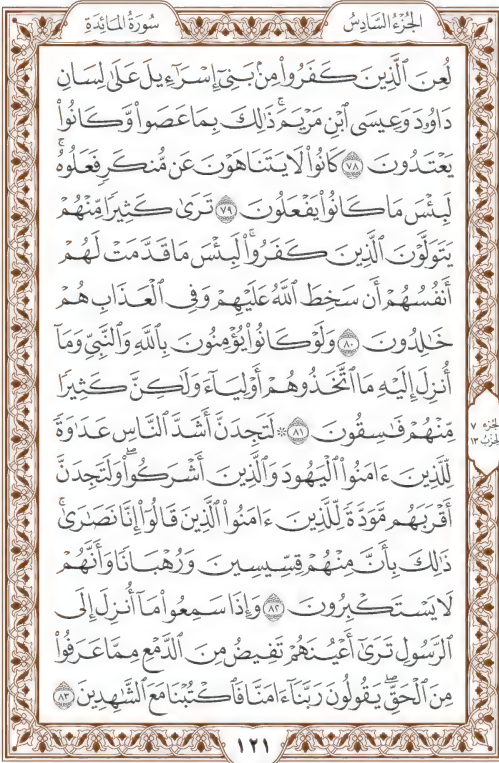 سُورَةُ المَائِدَةِ
الجُزْءُ السَّادِسُ
لُعِنَ ٱلَّذِينَ كَفَرُواْ مِنۢ بَنِىٓ إِسْرَٰٓءِيلَ عَلَىٰ لِسَانِ
دَاوُۥدَ وَعِيسَى ٱبْنِ مَرْيَمَۚ ذَٰلِكَ بِمَا عَصَواْ وَّكَانُواْ
يَعْتَدُونَ ٧٨ كَانُواْ لَا يَتَنَاهَوْنَ عَن مُّنكَرٍ فَعَلُوهُۚ
لَبِئْسَ مَا كَانُواْ يَفْعَلُونَ ٧٩ تَرَىٰ كَثِيرًا مِّنْهُمْ
يَتَوَلَّوْنَ ٱلَّذِينَ كَفَرُواْۚ لَبِئْسَ مَا قَدَّمَتْ لَهُمْ
أَنفُسُهُمْ أَن سَخِطَ ٱللَّهُ عَلَيْهِمْ وَفِى ٱلْعَذَابِ هُمْ
خَٰلِدُونَ ٨٠ وَلَوْ كَانُواْ يُؤْمِنُونَ بِٱللَّهِ وَٱلنَّبِىِّ وَمَآ
أُنزِلَ إِلَيْهِ مَا ٱتَّخَذُوهُمْ أَوْلِيَآءَ وَلَٰكِنَّ كَثِيرًا
مِّنْهُمْ فَٰسِقُونَ ٨١ ۞ لَتَجِدَنَّ أَشَدَّ ٱلنَّاسِ عَدَٰوَةً
لِّلَّذِينَ ءَامَنُواْ ٱلْيَهُودَ وَٱلَّذِينَ أَشْرَكُواْۖ وَلَتَجِدَنَّ
أَقْرَبَهُم مَّوَدَّةً لِّلَّذِينَ ءَامَنُواْ ٱلَّذِينَ قَالُوٓاْ إِنَّا نَصَٰرَىٰۚ
ذَٰلِكَ بِأَنَّ مِنْهُمْ قِسِّيسِينَ وَرُهْبَانًا وَأَنَّهُمْ
لَا يَسْتَكْبِرُونَ ٨٢ وَإِذَا سَمِعُواْ مَآ أُنزِلَ إِلَى
ٱلرَّسُولِ تَرَىٰٓ أَعْيُنَهُمْ تَفِيضُ مِنَ ٱلدَّمْعِ مِمَّا عَرَفُواْ
مِنَ ٱلْحَقِّۖ يَقُولُونَ رَبَّنَآ ءَامَنَّا فَٱكْتُبْنَا مَعَ ٱلشَّٰهِدِينَ ٨٣
الجزء ٧
الحزب ١٣
١٢١